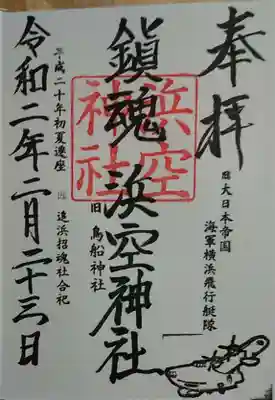 奉拝
旧大日本帝国
海軍横浜飛行艇隊
鎮魂 浜空神社
浜空
神社
旧 鳥船神社
追浜招魂社合祀
平成二十年初夏遷座
令和二年二月二十三日